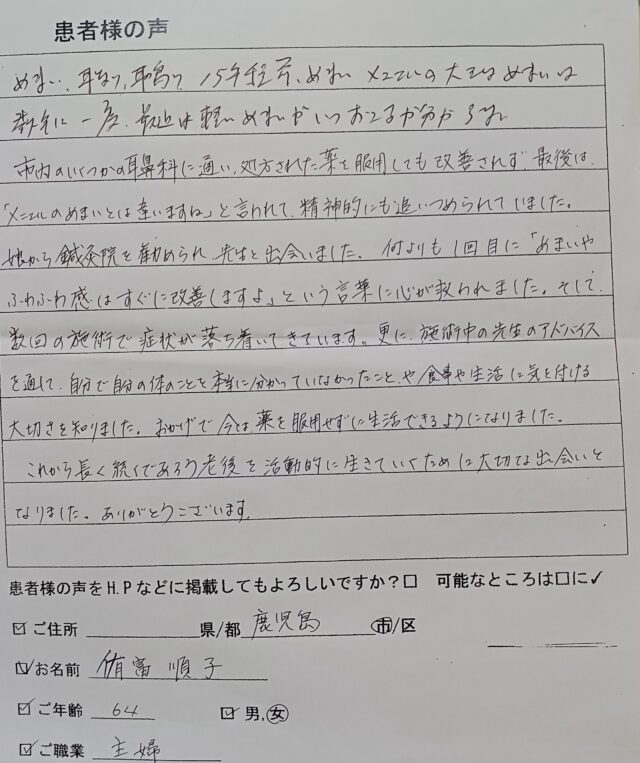 患者様の声
めまい、耳なり、耳鳴り 15年程前、めまい メニエルの大きなめまいは
数年に一度、最近は軽いめまいがいつおこるか分からない
市内のいくつかの耳鼻科に通い、処方された薬を服用しても改善されず、最後は、
「メニエルのめまいとは違いますね」と言われて、精神的にも追いつめられていました。
娘から鍼灸院を勧められ、先生と出会いました。何よりも1回目に「めまいや
ふわふわ感はすぐに改善しますよ」という言葉に心が救われました。そして、
数回の施術で症状が落ち着いてきています。更に、施術中の先生のアドバイス
を通して、自分で自分の体のことを本当に分かっていなかったこと、や食事や生活に気を付ける
大切さを知りました。おかげで今は薬を服用せずに生活できるようになりました。
これから長く続くであろう老後を活動的に生きていくために大切な出会いと
なりました。ありがとうございます。
患者様の声をH.Pなどに掲載してもよろしいですか?☐ 可能なところは☐に✓
☑ご住所 県/都 鹿児島 市/区
☑お名前 侑富順子
☑ご年齢 64 ☑男,女
☑ご職業 主婦